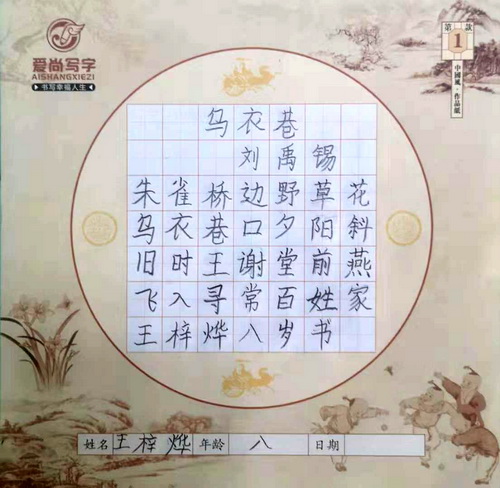 爱尚写字
AISHANGXIEZI
书写幸福人生
第1款
中國風·作品紙
乌衣巷
刘禹锡
朱雀桥边野草花
乌衣巷口夕阳斜
旧时王谢堂前燕
飞入寻常百姓家
王梓烨八岁书
姓名 王梓烨 年龄 八 日期